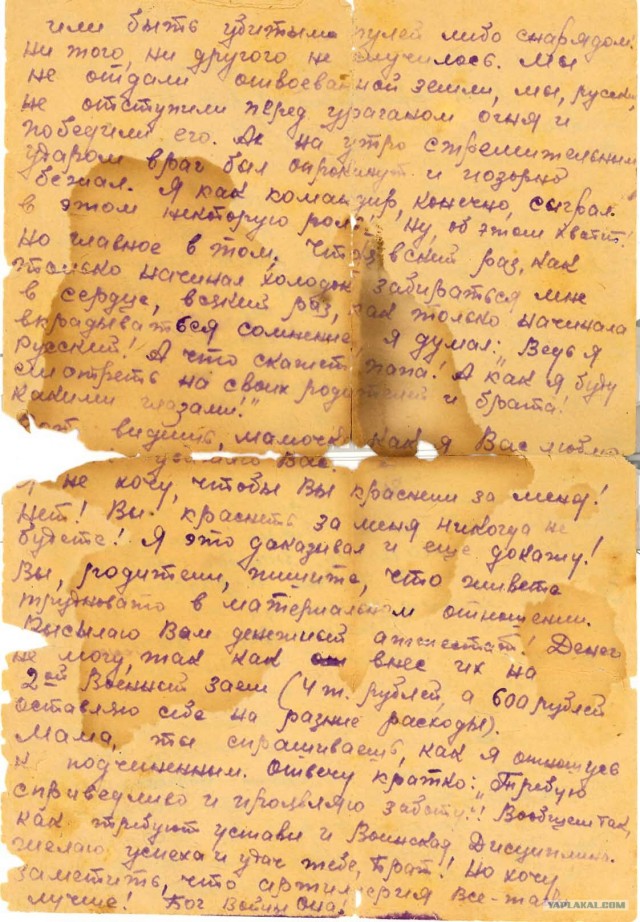 или быть убитыми пулей либо снарядом.
ни того, ни другого не случилось. Мы
не отдали отвоеванной земли, мы, русские
не отступили перед ураганом огня и
победили его. А на утро стремительным
ударом враг был опрокинут и позорно
бежал. Я как командир, конечно, сыграл
в этом некоторую роль. Ну, об этом хватит!
Но главное в том, что всякий раз, как
только начинал холодок забираться мне
в сердце, всякий раз, как только начинало
вкрадываться сомнение, я думал: „Ведь я
Русский! А что скажет папа! А как я буду
смотреть на своих родителей и брата!
Какими глазами!"
видишь, мамочка, как я Вас люблю
Вас.
Я не хочу, чтобы Вы краснели за меня!
Нет! Вы краснеть за меня никогда не
будете! Я это доказывал и еще докажу!
Вы, родители, пишите, что живете
трудновато в материальном отношении.
Высылаю Вам денежный аттестат! Денег
не могу, так как внес их на
2ой Военный заем (4 т. рублей, а 600 рублей
оставляю себе на разные расходы).
Мама, ты спрашиваешь, как я отношусь
к подчиненным. Отвечу кратко: „Требую
справедливо и проявляю заботу"! Вообщем так,
как требуют уставы и Воинская Дисциплина.
Желаю успеха и удач тебе, Брат! Но хочу
заметить, что артиллерия все-таки
лучше! Бог Войны Она!
YAPLAKAL.COM